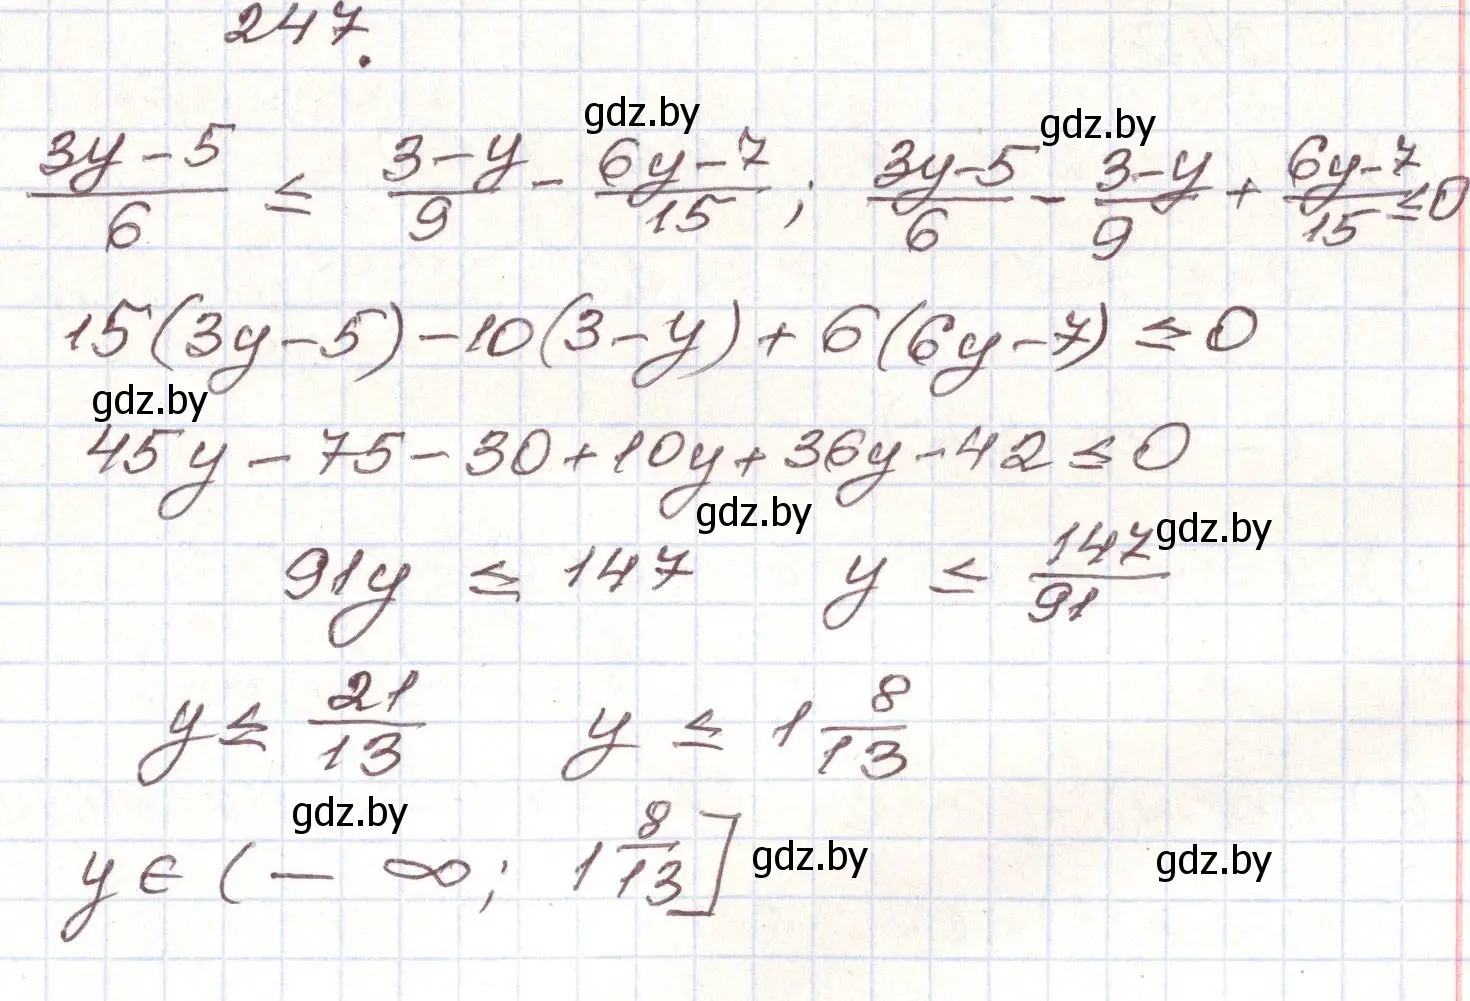 247.
(3y-5)/6 ≤ (3-y)/9 - (6y-7)/15; (3y-5)/6 - (3-y)/9 + (6y-7)/15 ≤ 0
gdz.by gdz.by
15(3y-5)-10(3-y)+6(6y-7) ≤ 0
gdz.by
45y-75-30+10y+36y-42 ≤ 0
gdz.by gdz.by
91y ≤ 147 y ≤ 147/91
y ≤ 21/13 y ≤ 1 8/13
gdz.by
y ∈ (-∞; 1 8/13] gdz.by gdz.by